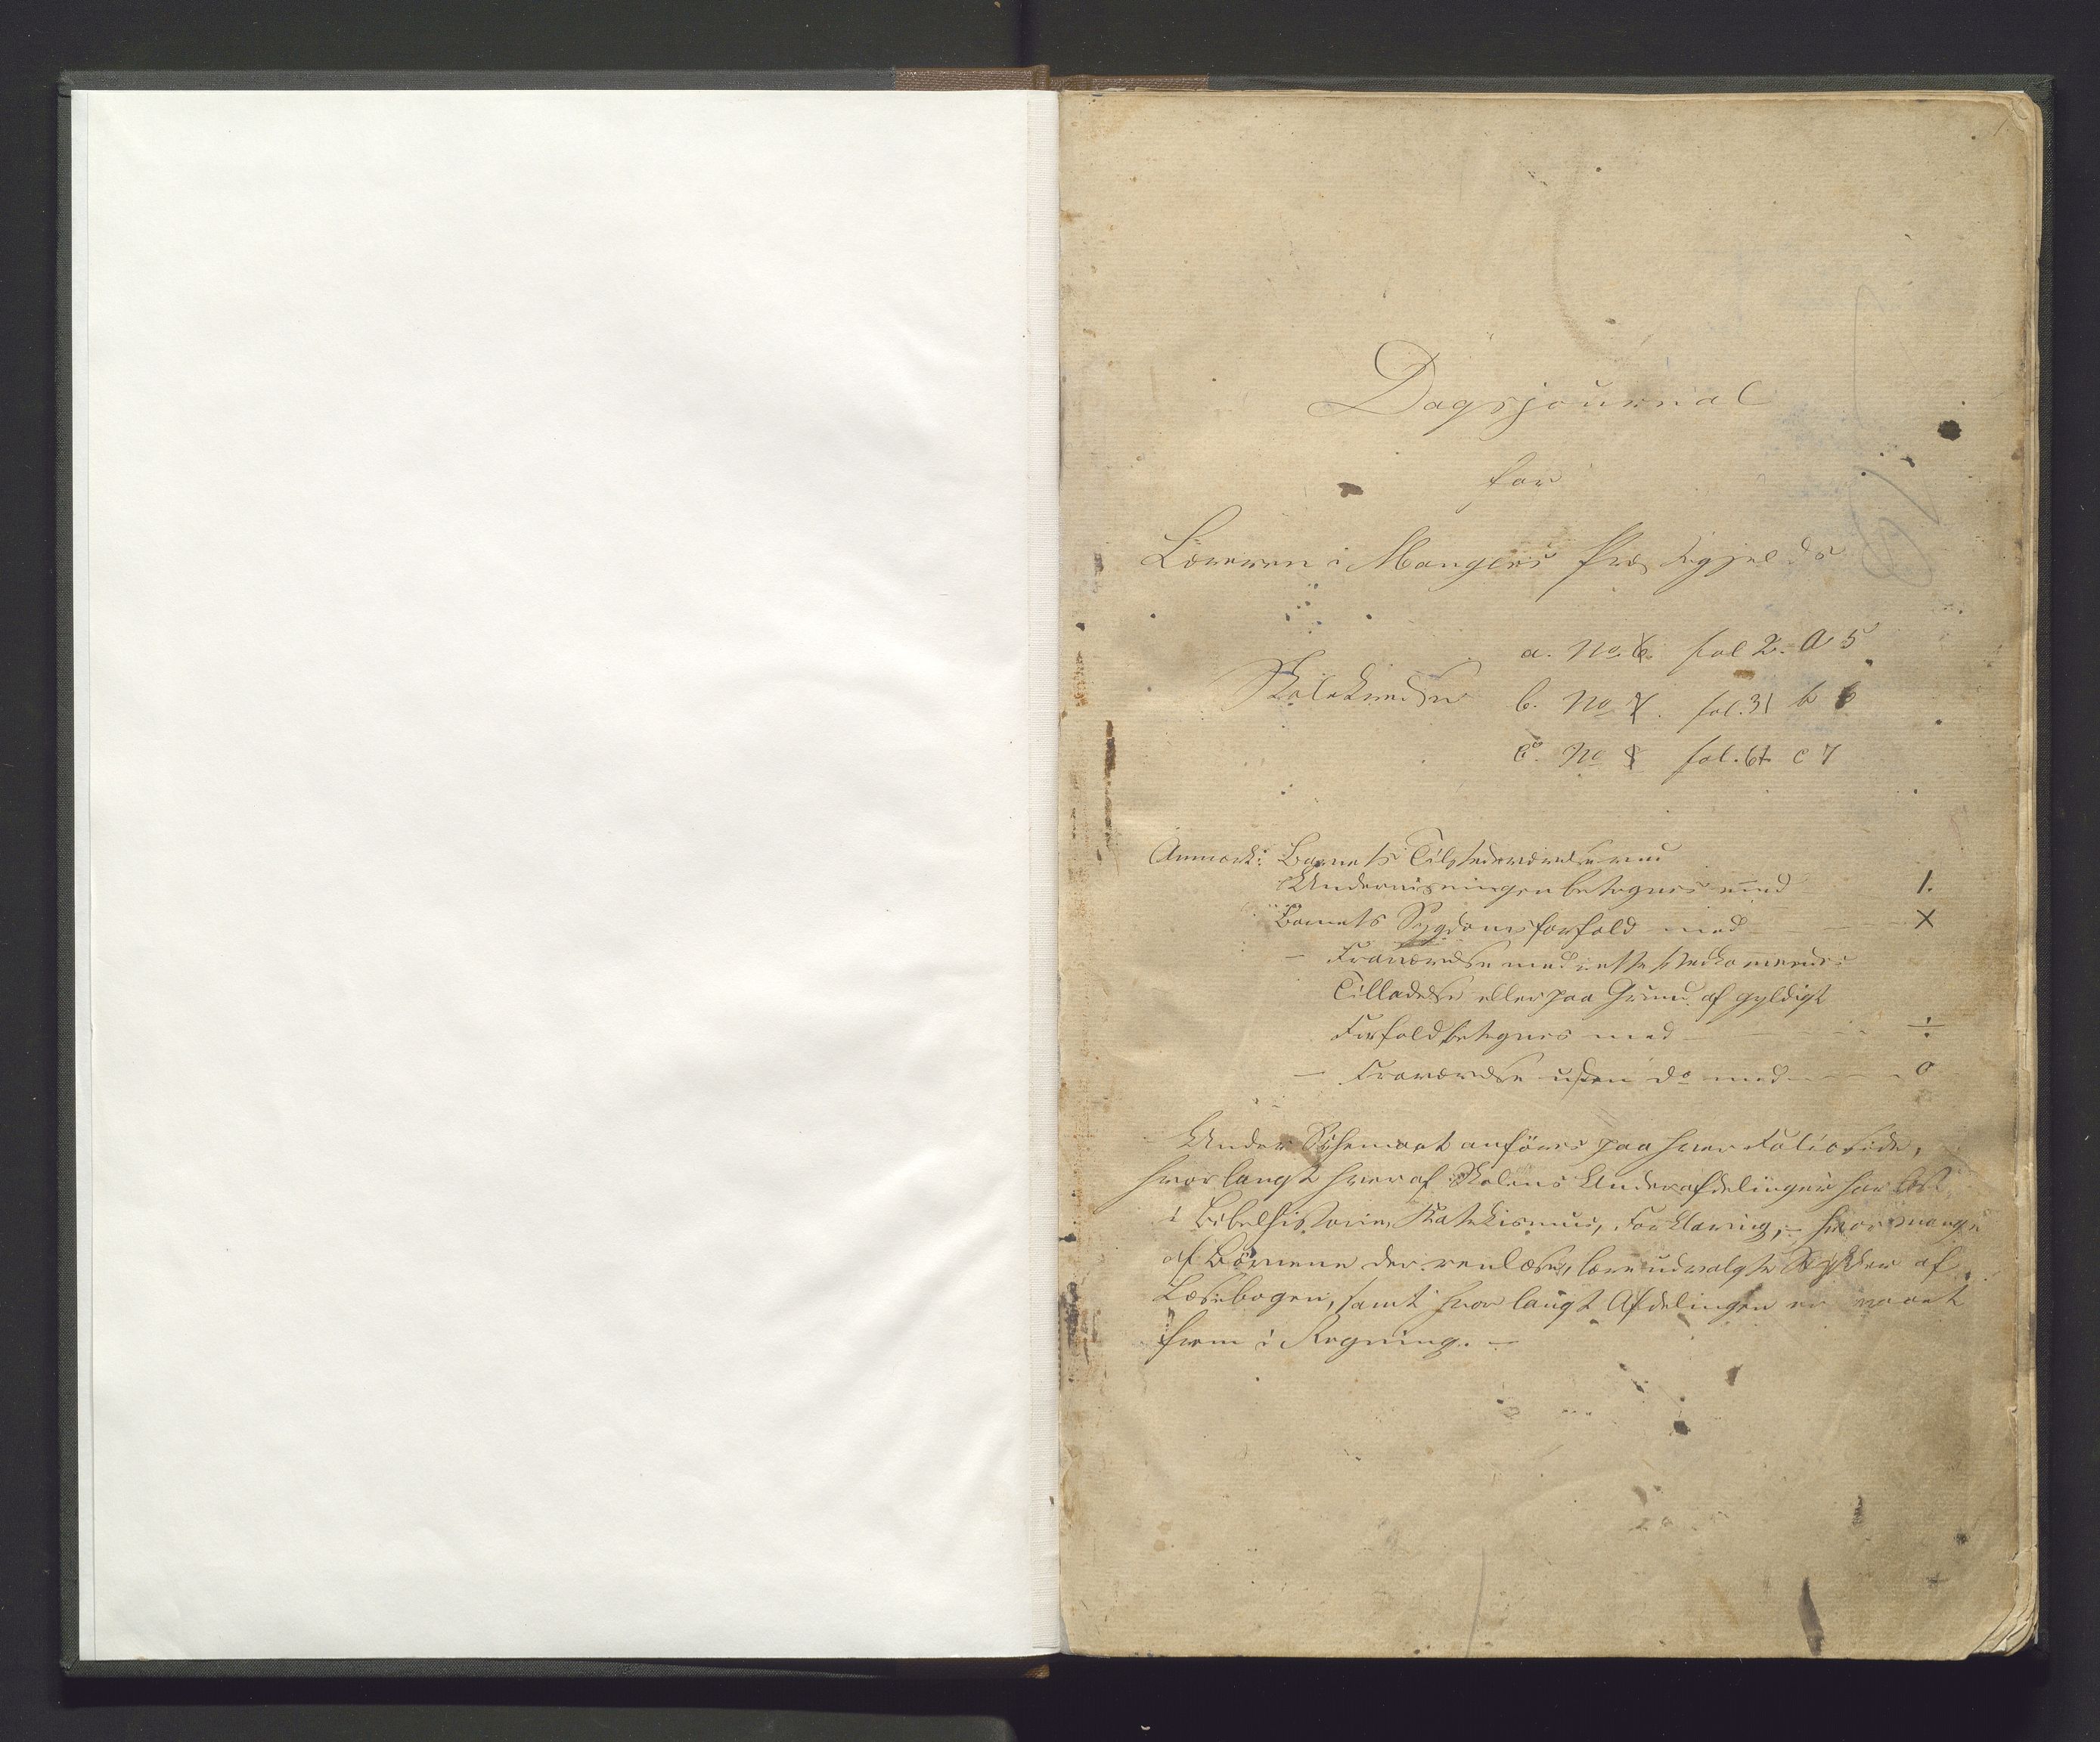 Dagsjournal
for
Læreren i Mangers Præstegjelds
a. No 6. fol 2. a 5
Skolekredse b. No 7. fol. 31 b 6
c. No 8 fol. 61. c 7
Anmærk: Barnets Tilstedeværelse ved
Undervisningen betegnes med 1.
Barnets Sygdomsforfald med - - X
- Fraværelse med rette Vedkommendes
Tilladelse eller paa Grund af gyldigt
Forfald betegnes med - - - ÷
- Fraværelse uden do med - - - 0
Under Schemaet anføres paa hver Folioside,
hvor langt hver af Skolens Underafdelinger har læst
i Bibelhistorie, Katekismus, Forklaring, - hvor mange
af Börnene der renlæse, lære udvalgte Stykker af
Læsebogen, samt hvor langt Afdelingen er naaet
frem i Regning. -